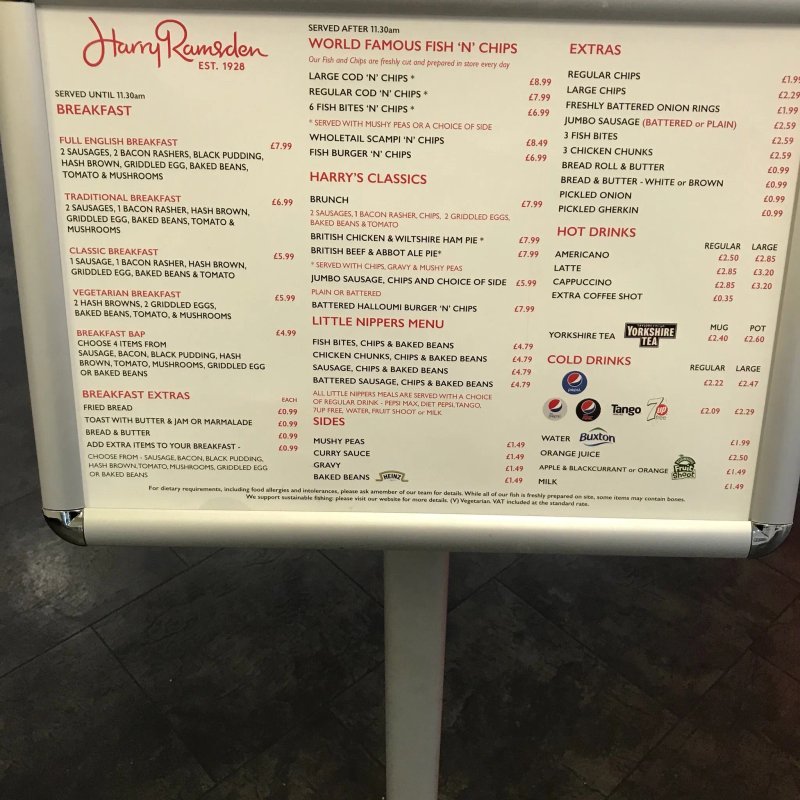 Harry Ramsden
EST. 1928
SERVED UNTIL 11.30am
BREAKFAST
FULL ENGLISH BREAKFAST £7.99
2 SAUSAGES, 2 BACON RASHERS, BLACK PUDDING,
HASH BROWN, GRIDDLED EGG, BAKED BEANS,
TOMATO & MUSHROOMS
TRADITIONAL BREAKFAST £6.99
2 SAUSAGES, 1 BACON RASHER, HASH BROWN,
GRIDDLED EGG, BAKED BEANS, TOMATO &
MUSHROOMS
CLASSIC BREAKFAST £5.99
1 SAUSAGE, 1 BACON RASHER, HASH BROWN,
GRIDDLED EGG, BAKED BEANS & TOMATO
VEGETARIAN BREAKFAST £5.99
2 HASH BROWNS, 2 GRIDDLED EGGS,
BAKED BEANS, TOMATO, & MUSHROOMS
BREAKFAST BAP £4.99
CHOOSE 4 ITEMS FROM
SAUSAGE, BACON, BLACK PUDDING, HASH
BROWN, TOMATO, MUSHROOMS, GRIDDLED EGG
OR BAKED BEANS
BREAKFAST EXTRAS EACH
FRIED BREAD £0.99
TOAST WITH BUTTER & JAM OR MARMALADE £0.99
BREAD & BUTTER £0.99
ADD EXTRA ITEMS TO YOUR BREAKFAST - £0.99
CHOOSE FROM - SAUSAGE, BACON, BLACK PUDDING,
HASH BROWN, TOMATO, MUSHROOMS, GRIDDLED EGG
OR BAKED BEANS
SERVED AFTER 11.30am
WORLD FAMOUS FISH 'N' CHIPS
Our Fish and Chips are freshly cut and prepared in store every day
LARGE COD 'N' CHIPS * £8.99
REGULAR COD 'N' CHIPS * £7.99
6 FISH BITES 'N' CHIPS * £6.99
* SERVED WITH MUSHY PEAS OR A CHOICE OF SIDE
WHOLETAIL SCAMPI 'N' CHIPS £8.49
FISH BURGER 'N' CHIPS £6.99
HARRY'S CLASSICS
BRUNCH £7.99
2 SAUSAGES, 1 BACON RASHER, CHIPS, 2 GRIDDLED EGGS,
BAKED BEANS & TOMATO
BRITISH CHICKEN & WILTSHIRE HAM PIE * £7.99
BRITISH BEEF & ABBOT ALE PIE* £7.99
* SERVED WITH CHIPS, GRAVY & MUSHY PEAS
JUMBO SAUSAGE, CHIPS AND CHOICE OF SIDE £5.99
PLAIN OR BATTERED
BATTERED HALLOUMI BURGER 'N' CHIPS £7.99
LITTLE NIPPERS MENU
FISH BITES, CHIPS & BAKED BEANS £4.79
CHICKEN CHUNKS, CHIPS & BAKED BEANS £4.79
SAUSAGE, CHIPS & BAKED BEANS £4.79
BATTERED SAUSAGE, CHIPS & BAKED BEANS £4.79
ALL LITTLE NIPPERS MEALS ARE SERVED WITH A CHOICE
OF REGULAR DRINK - PEPSI MAX, DIET PEPSI, TANGO,
7UP FREE, WATER, FRUIT SHOOT or MILK
SIDES
MUSHY PEAS £1.49
CURRY SAUCE £1.49
GRAVY £1.49
BAKED BEANS HEINZ £1.49
EXTRAS
REGULAR CHIPS £1.99
LARGE CHIPS £2.29
FRESHLY BATTERED ONION RINGS £1.99
JUMBO SAUSAGE (BATTERED or PLAIN) £2.59
3 FISH BITES £2.59
3 CHICKEN CHUNKS £2.59
BREAD ROLL & BUTTER £0.99
BREAD & BUTTER - WHITE or BROWN £0.99
PICKLED ONION £0.99
PICKLED GHERKIN £0.99
HOT DRINKS
REGULAR LARGE
AMERICANO £2.50 £2.85
LATTE £2.85 £3.20
CAPPUCCINO £2.85 £3.20
EXTRA COFFEE SHOT £0.35
MUG POT
YORKSHIRE TEA YORKSHIRE TEA £2.40 £2.60
COLD DRINKS
REGULAR LARGE
pepsi £2.22 £2.47
Tango 7up free £2.09 £2.29
WATER Buxton £1.99
ORANGE JUICE £2.50
APPLE & BLACKCURRANT or ORANGE Fruit Shoot £1.49
MILK £1.49
For dietary requirements, including food allergies and intolerances, please ask amember of our team for details. While all of our fish is freshly prepared on site, some items may contain bones.
We support sustainable fishing: please visit our website for more details. (V) Vegetarian. VAT included at the standard rate.